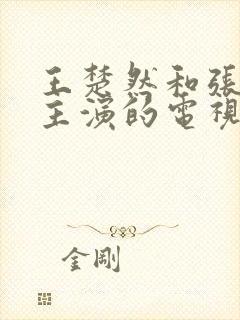 王楚然和張
主演的電視
金剛